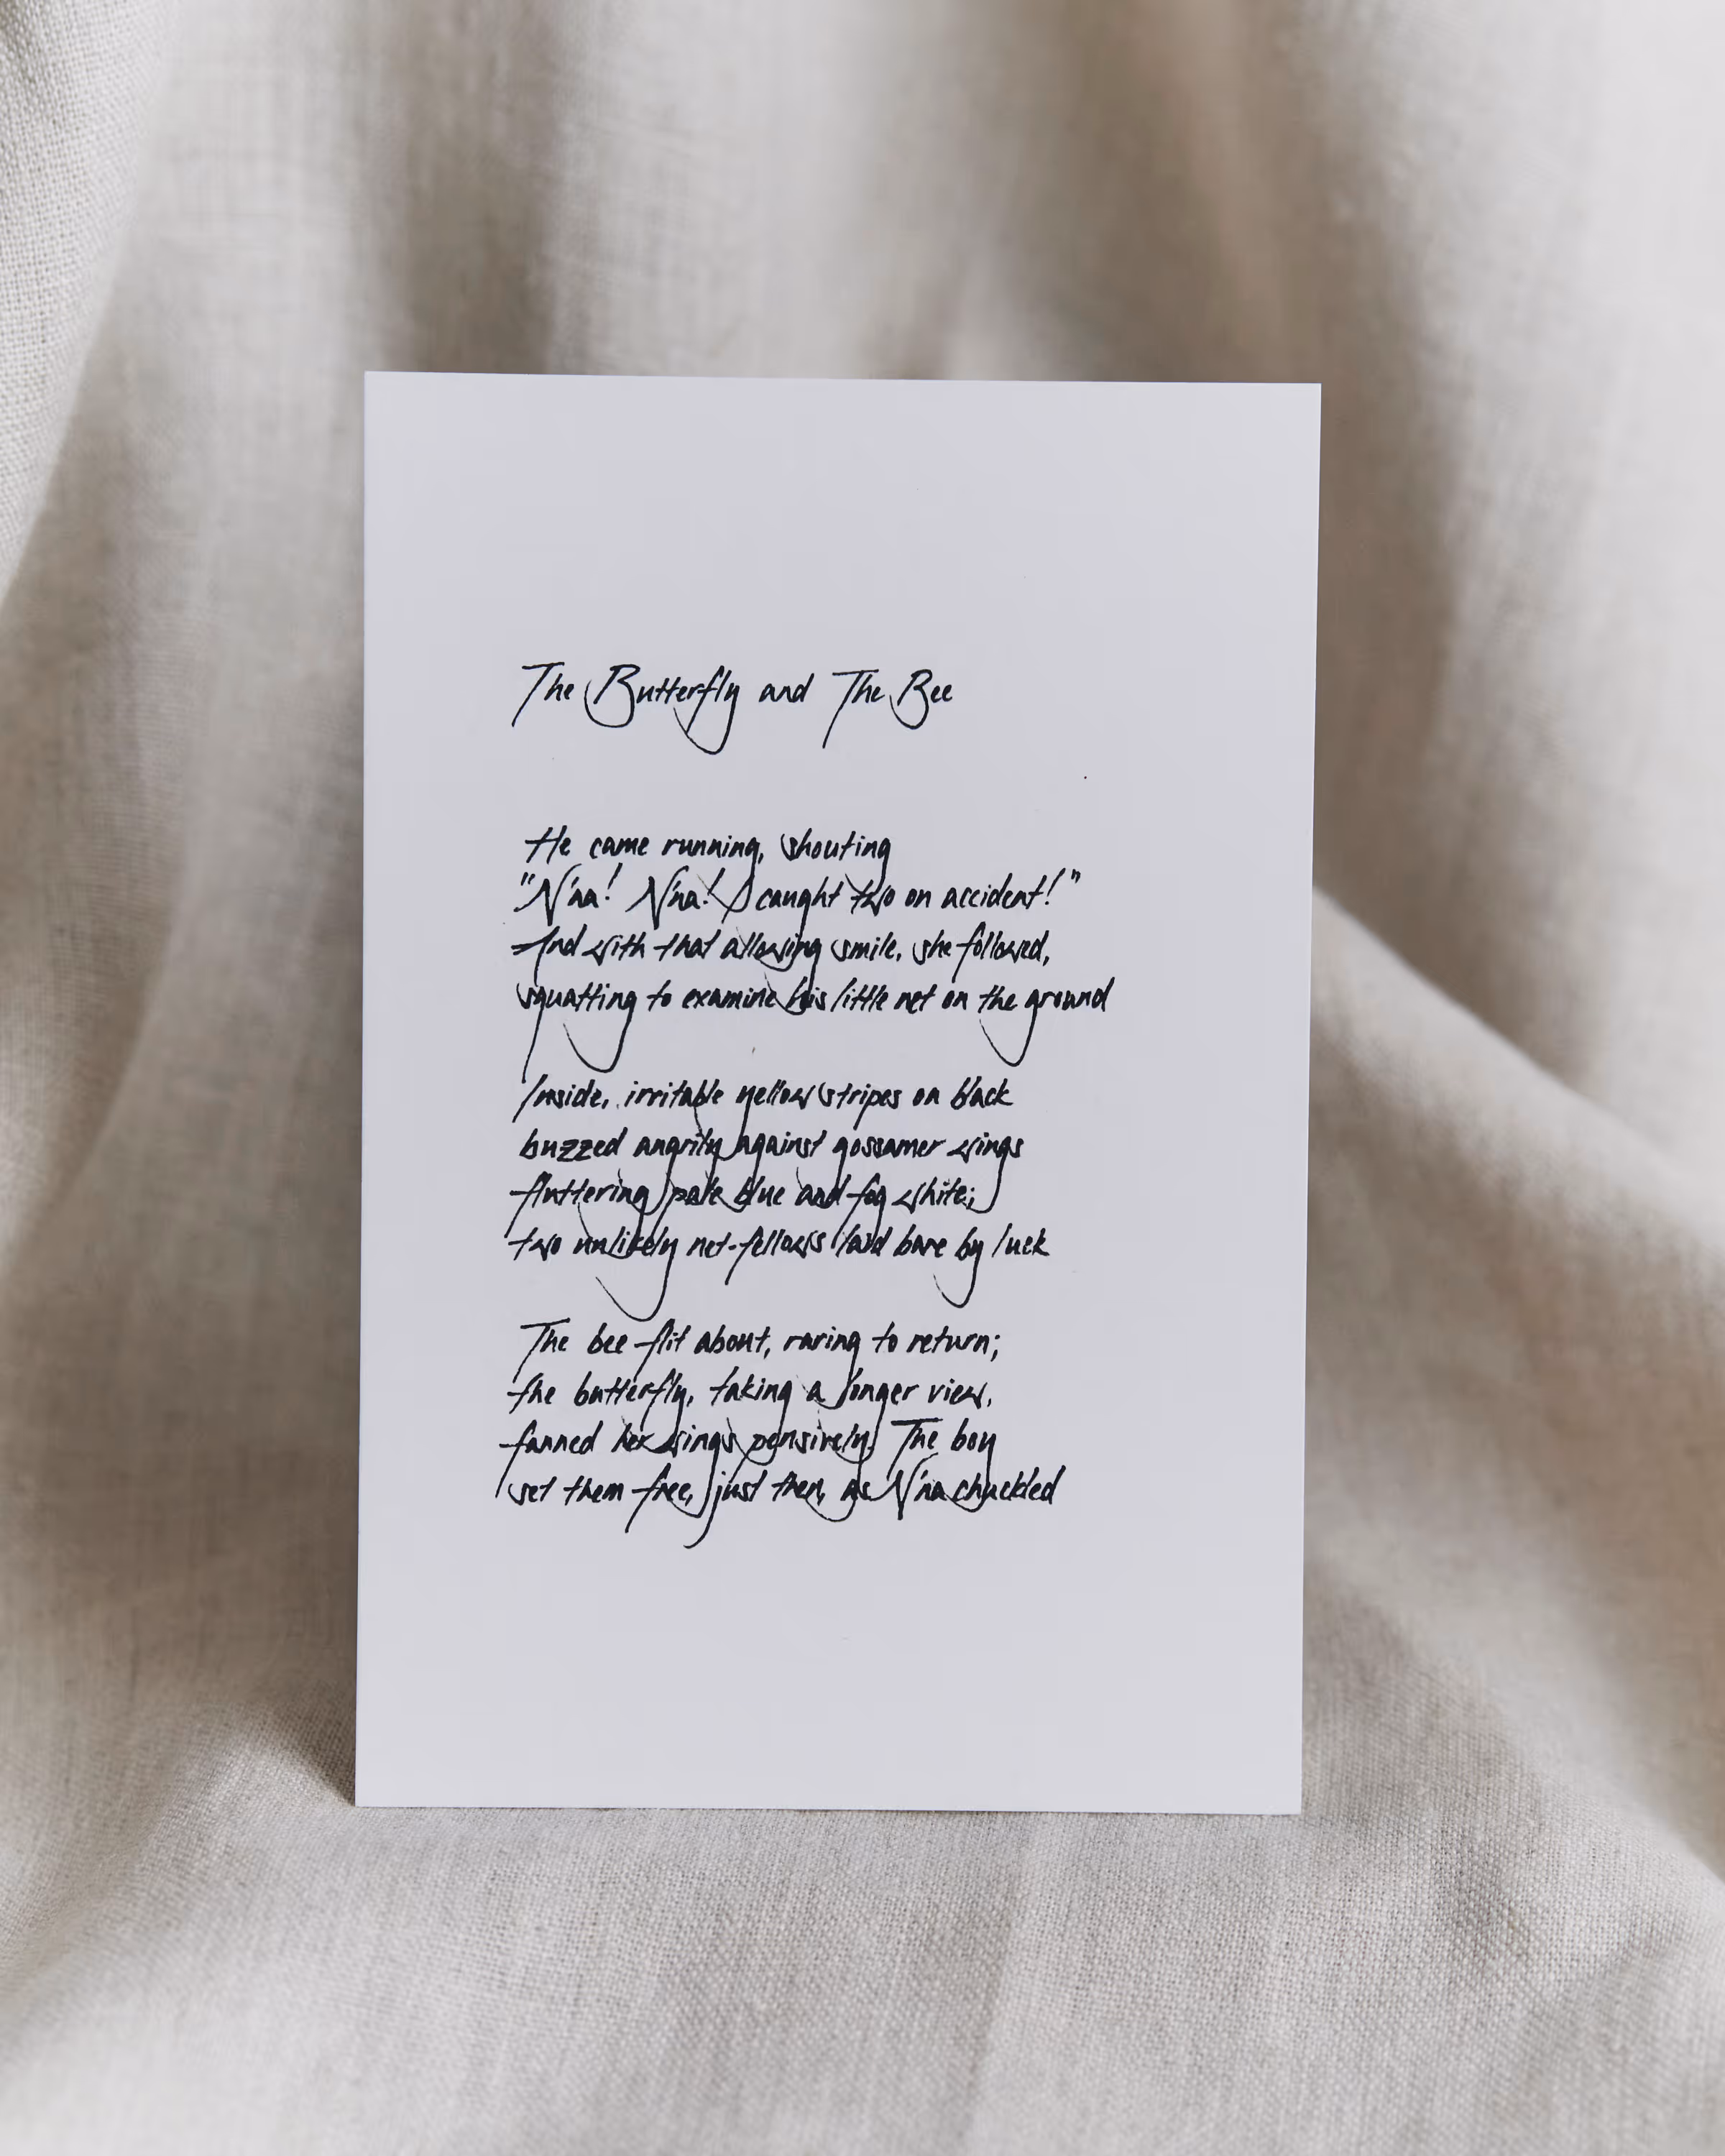 The Butterfly and The Bee
He came running, shouting
"N'na! N'na! I caught two on accident!"
And with that allowing smile, she followed,
squatting to examine his little net on the ground
Inside, irritable yellow stripes on black
buzzed angrily against gossamer wings
fluttering pale blue and fog white;
two unlikely net-fellows laid bare by luck
The bee flit about, raring to return;
the butterfly, taking a longer view,
fanned her wings pensively. The boy
set them free, just then, as N'na chuckled